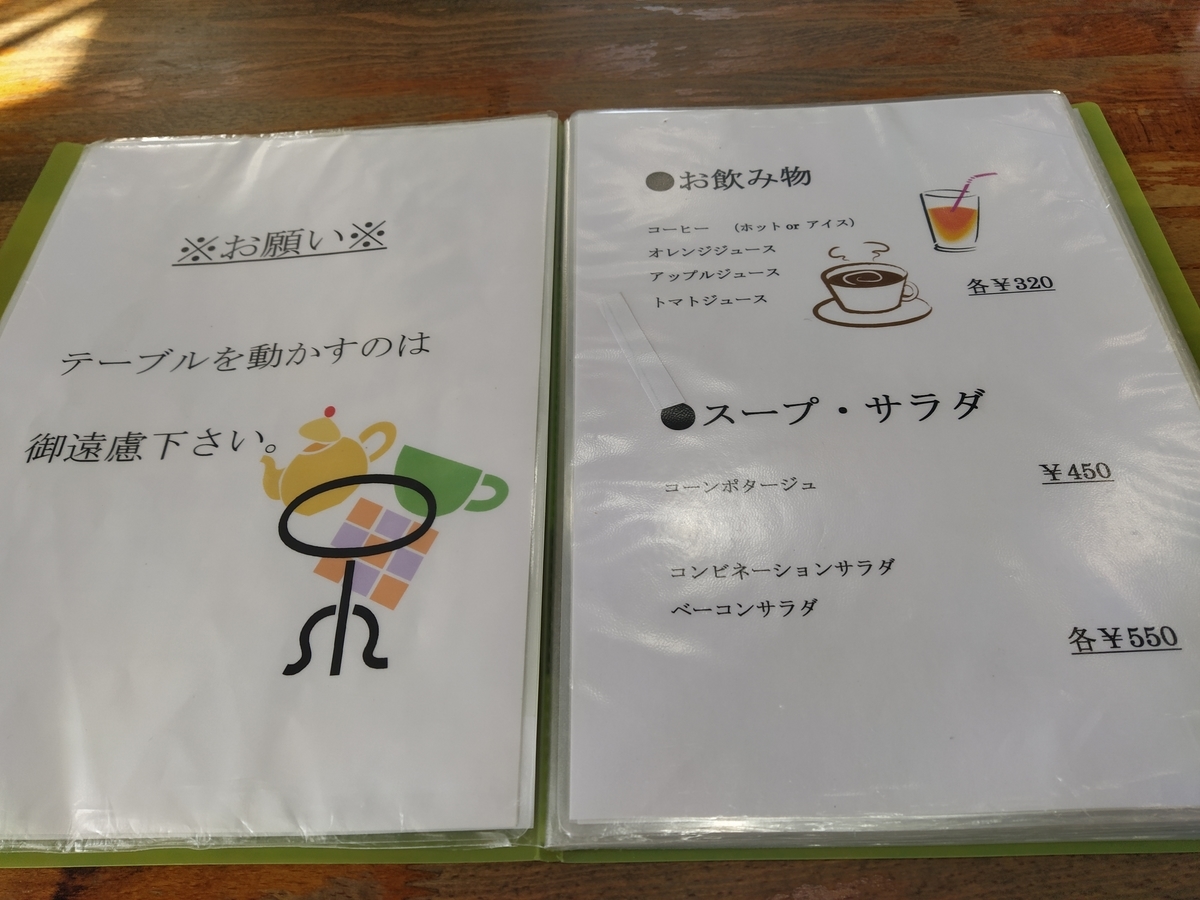 ※お願い※
テーブルを動かすのは
御遠慮下さい。
●お飲み物
コーヒー (ホット or アイス)
オレンジジュース
アップルジュース
トマトジュース
各￥320
●スープ・サラダ
コーンポタージュ
￥450
コンビネーションサラダ
ベーコンサラダ
各￥550